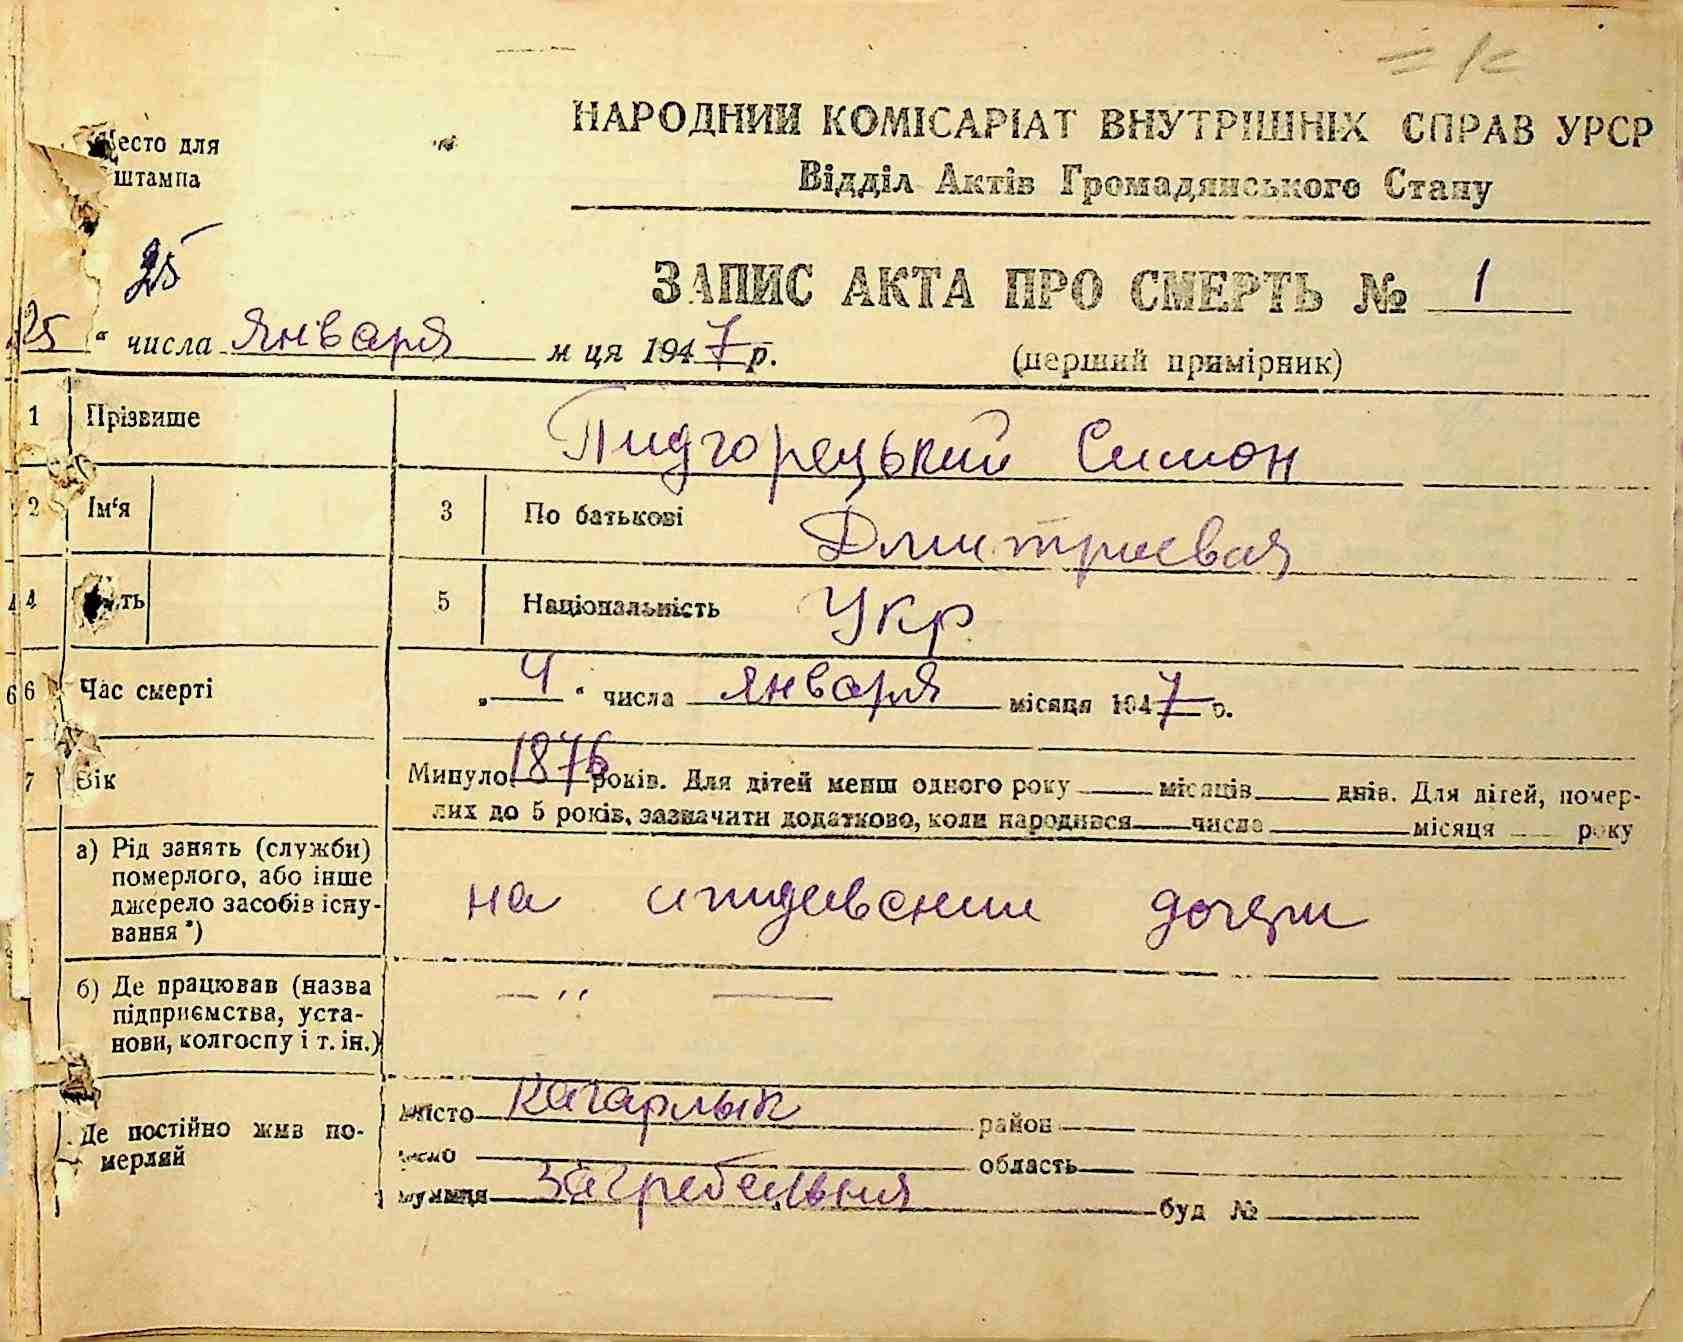 НАРОДНИЙ КОМІСАРІАТ ВНУТРІШНІХ СПРАВ УРСР
Відділ Актів Громадянського Стану
Место для
штампа
25
ЗАПИС АКТА ПРО СМЕРТЬ № 1
25 " числа Января м ця 1947 р.
(перший примірник)
1 Прізвише Пидгорецький Симон
2 Ім'я 3 По батькові Дмитриевич
4 5 Національність Укр
6 Час смерті „ 4 " числа января місяця 1947 р.
7 Вік Минуло 1876 років. Для дітей менш одного року місяців днів. Для дітей, помер-
лих до 5 років, зазначити додатково, коли народився числа місяця року
а) Рід занять (служби)
померлого, або інше
джерело засобів існу-
вання *)
на иждевении дочери
б) Де працював (назва
підприємства, уста-
нови, колгоспу і т. ін.)
— ,, —
Де постійно жив по-
мерлий
місто Кагарлык район
село область
вулиця Загребельня буд №